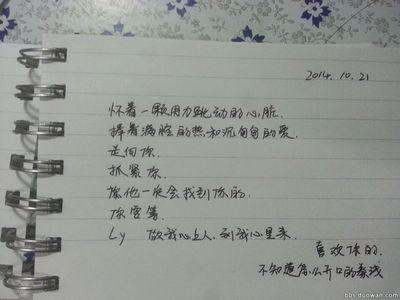 2014.10.21
怀着一颗用力跳动的心脏.
捧着满腔的热和沉甸甸的爱.
走向你.
抓紧你.
他一定会找到你的.
你要等.
Ly 做我心上人,到我心里来.
喜欢你的.
不知道怎么开口的
bbs.duowan.com